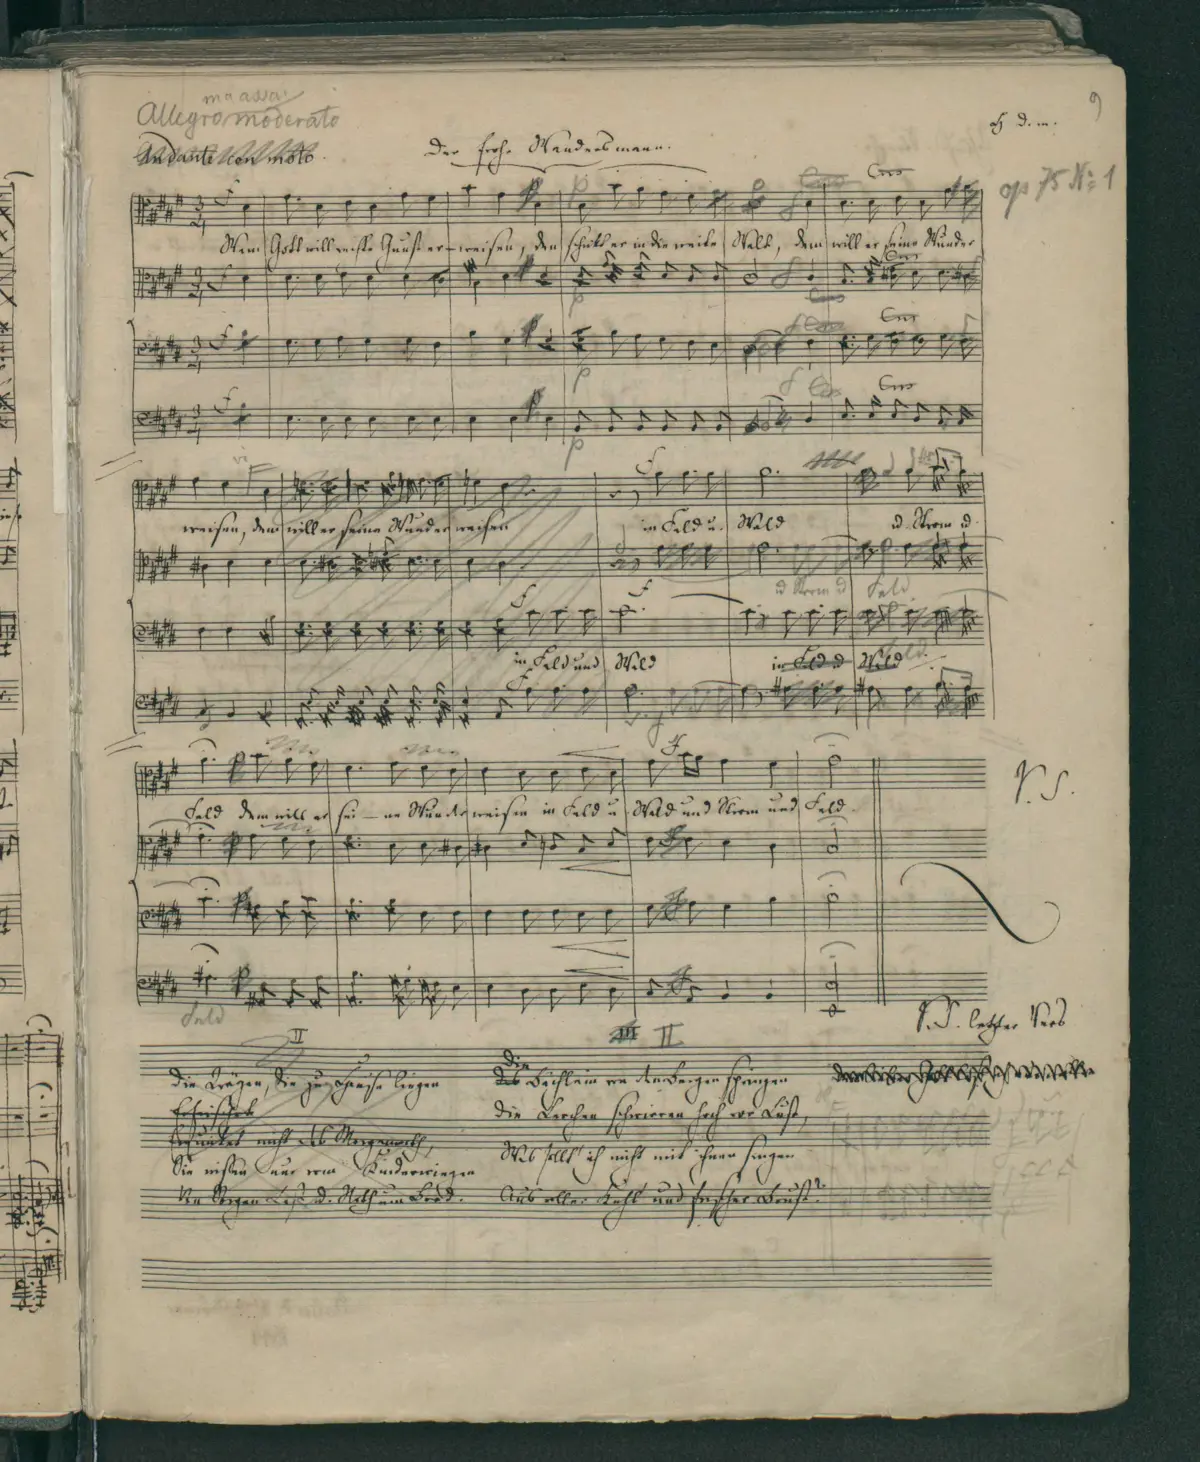 9
ma assai
Allegro moderato
Andante con moto.
Der frohe Wandersmann.
op 75 No 1
Cres
F F
Wem Gott will rechte Gunst er-weisen, den schickt er in die weite Welt, dem will er seine Wunder
f Cres
p
f Cres Cres
p
f Cres Cres
p
F
weisen, dem will er seine Wunder weisen in Feld u. Wald u. Strom u.
F
u Strom u Feld
in Feld und Wald in Feld u Wald
F
Feld dem will er sei-ne Wunder weisen in Feld u. Wald und Strom und Feld.
V. S.
Feld
V. S. letzter Vers
II III II
Die Trägen, die zu Hause liegen
Erquicket nicht das Morgenroth,
Sie wissen nur vom Kinderwiegen
Von Sorgen Last u. Noth um Brod.
Die Bächlein von den Bergen springen
Die Lerchen schwirren hoch vor Lust,
Was sollt' ich nicht mit ihnen singen
Aus voller Kehl' und frischer Brust?